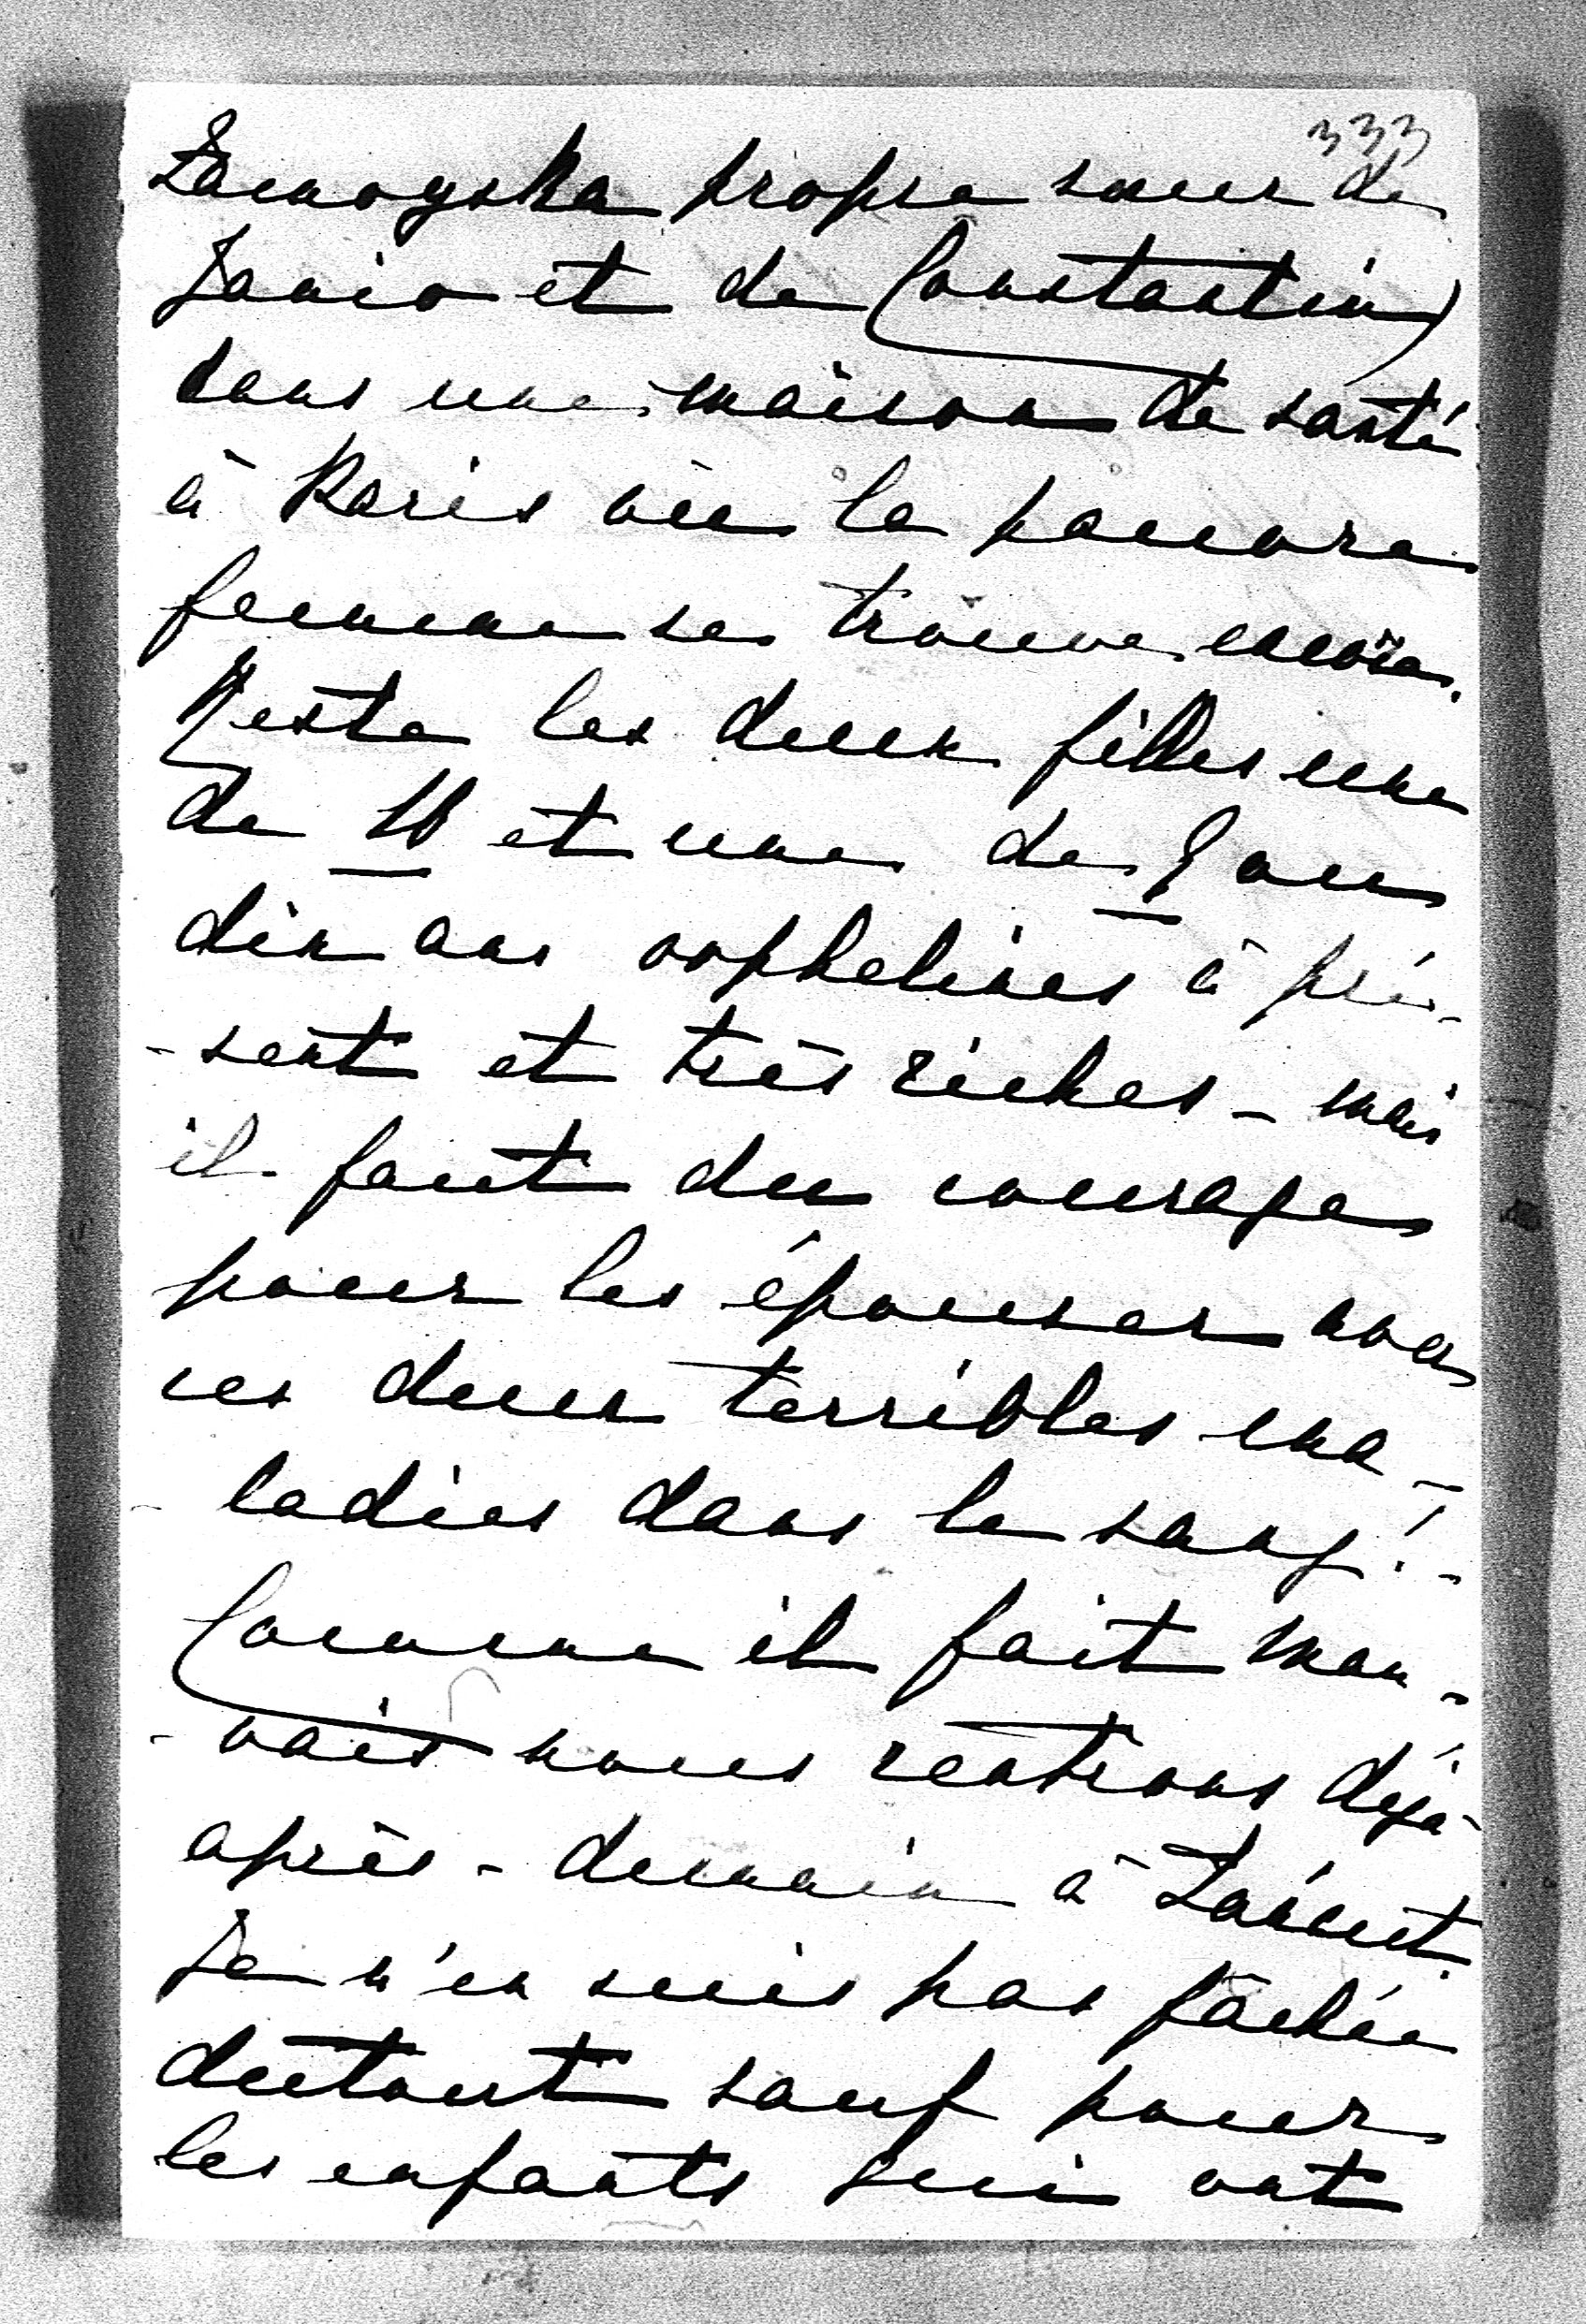 333
Zamoyska propre sœur de
Janio et de Constantin)
dans une maison de santé
à Paris où la pauvre
femme se trouve encore.
Reste les deux filles une
de 16 et une de 9 ou
dix ans orphelines à pré-
-sent et très riches - mais
il faut du courage
pour les épouser avec
ces deux terribles ma-
-ladies dans le sang! -
Comme il fait mau-
-vais nous rentrons déjà
après-demain à Łańcut.
Je n'en suis pas fâchée
dutout sauf pour
les enfants qui ont